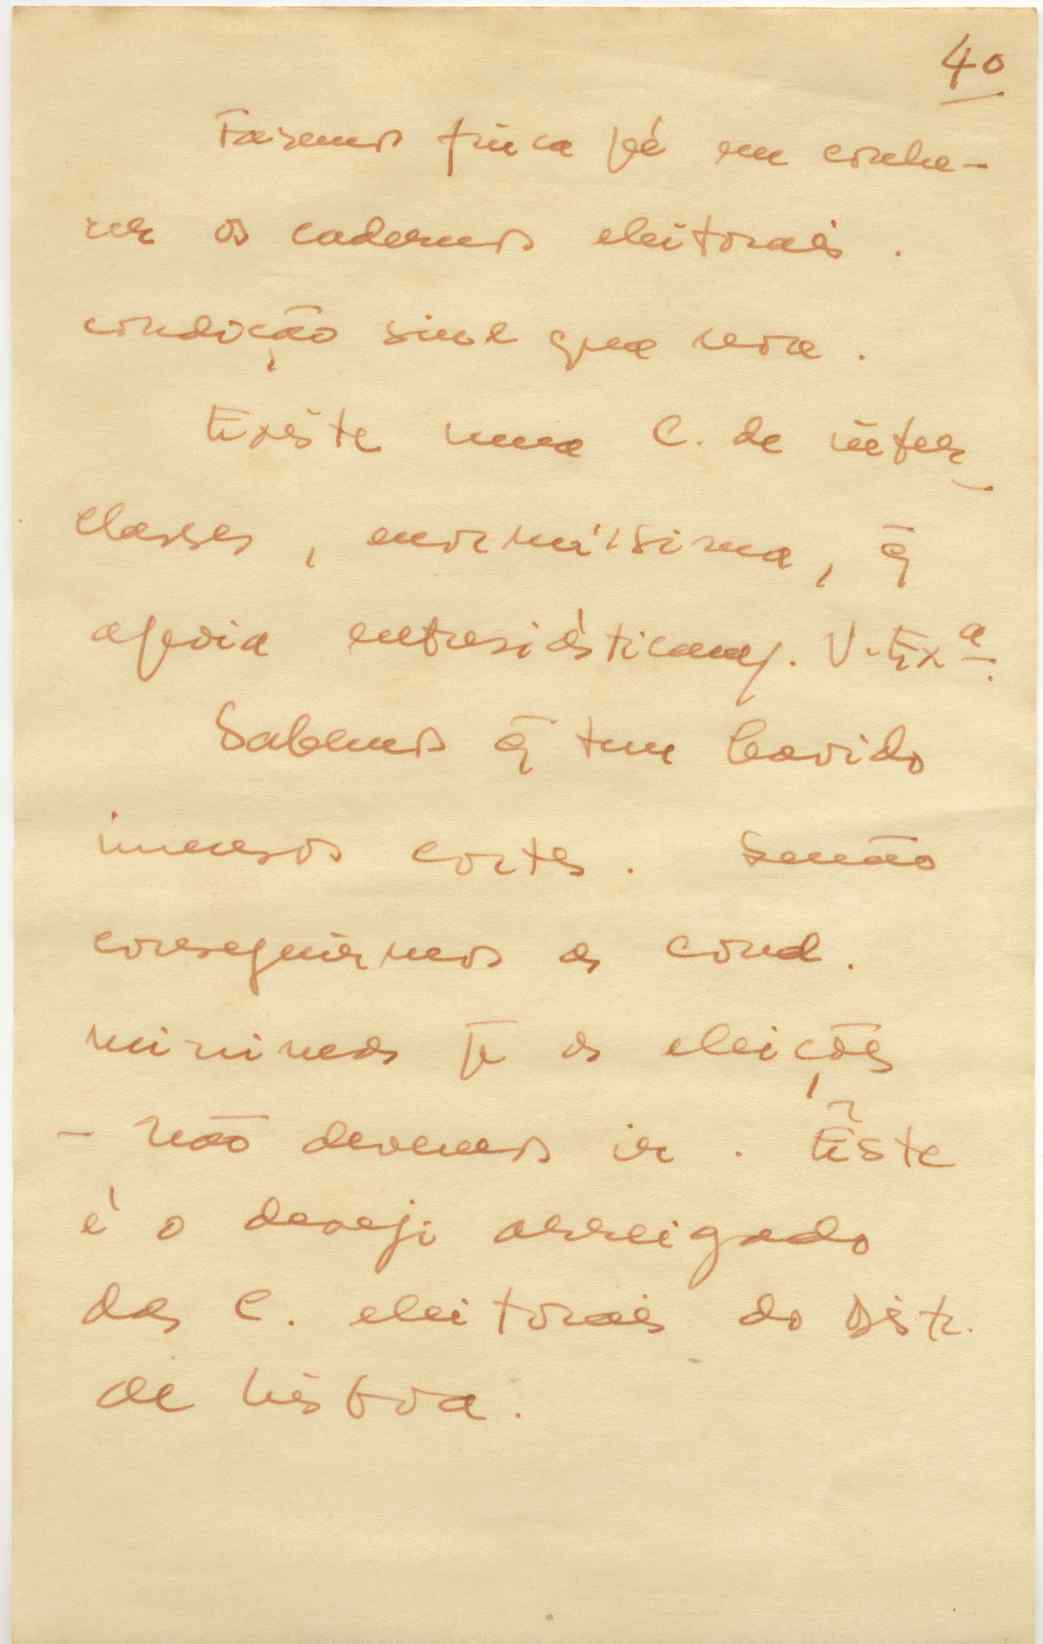 40
Fazemos finca pé em conhe-
cer os cadernos eleitorais.
condição sine qua nona.
Existe uma C. de inter_
classes, enormíssima, q̄
apoia entusiásticamᵉ. V. Exª.
Sabemos q̄ tem havido
imensos cortes. Senão
conseguirmos as cond.
minimas p̄ as eleições
- não devemos ir. Êste
é o desejo arreigado
das C. eleitorais do Distr.
de Lisboa.